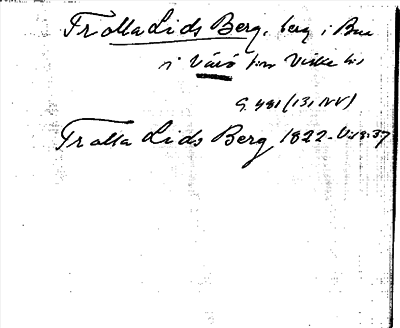 Trolla Lids Berg, berg i Bua
i Värö sn Viske hd
G. 481 (131 NV)
Trolla Lids Berg 1822-